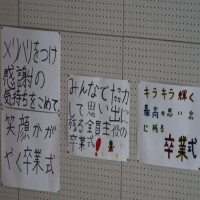 メリハリをつけ
感謝の
気持ちをこめて、
笑顔かが
やく卒業式
みんなで協力
して思い出に
残る全員主役の
卒業式!!
キラキラ輝く
最高の思い出
に残る
卒業式